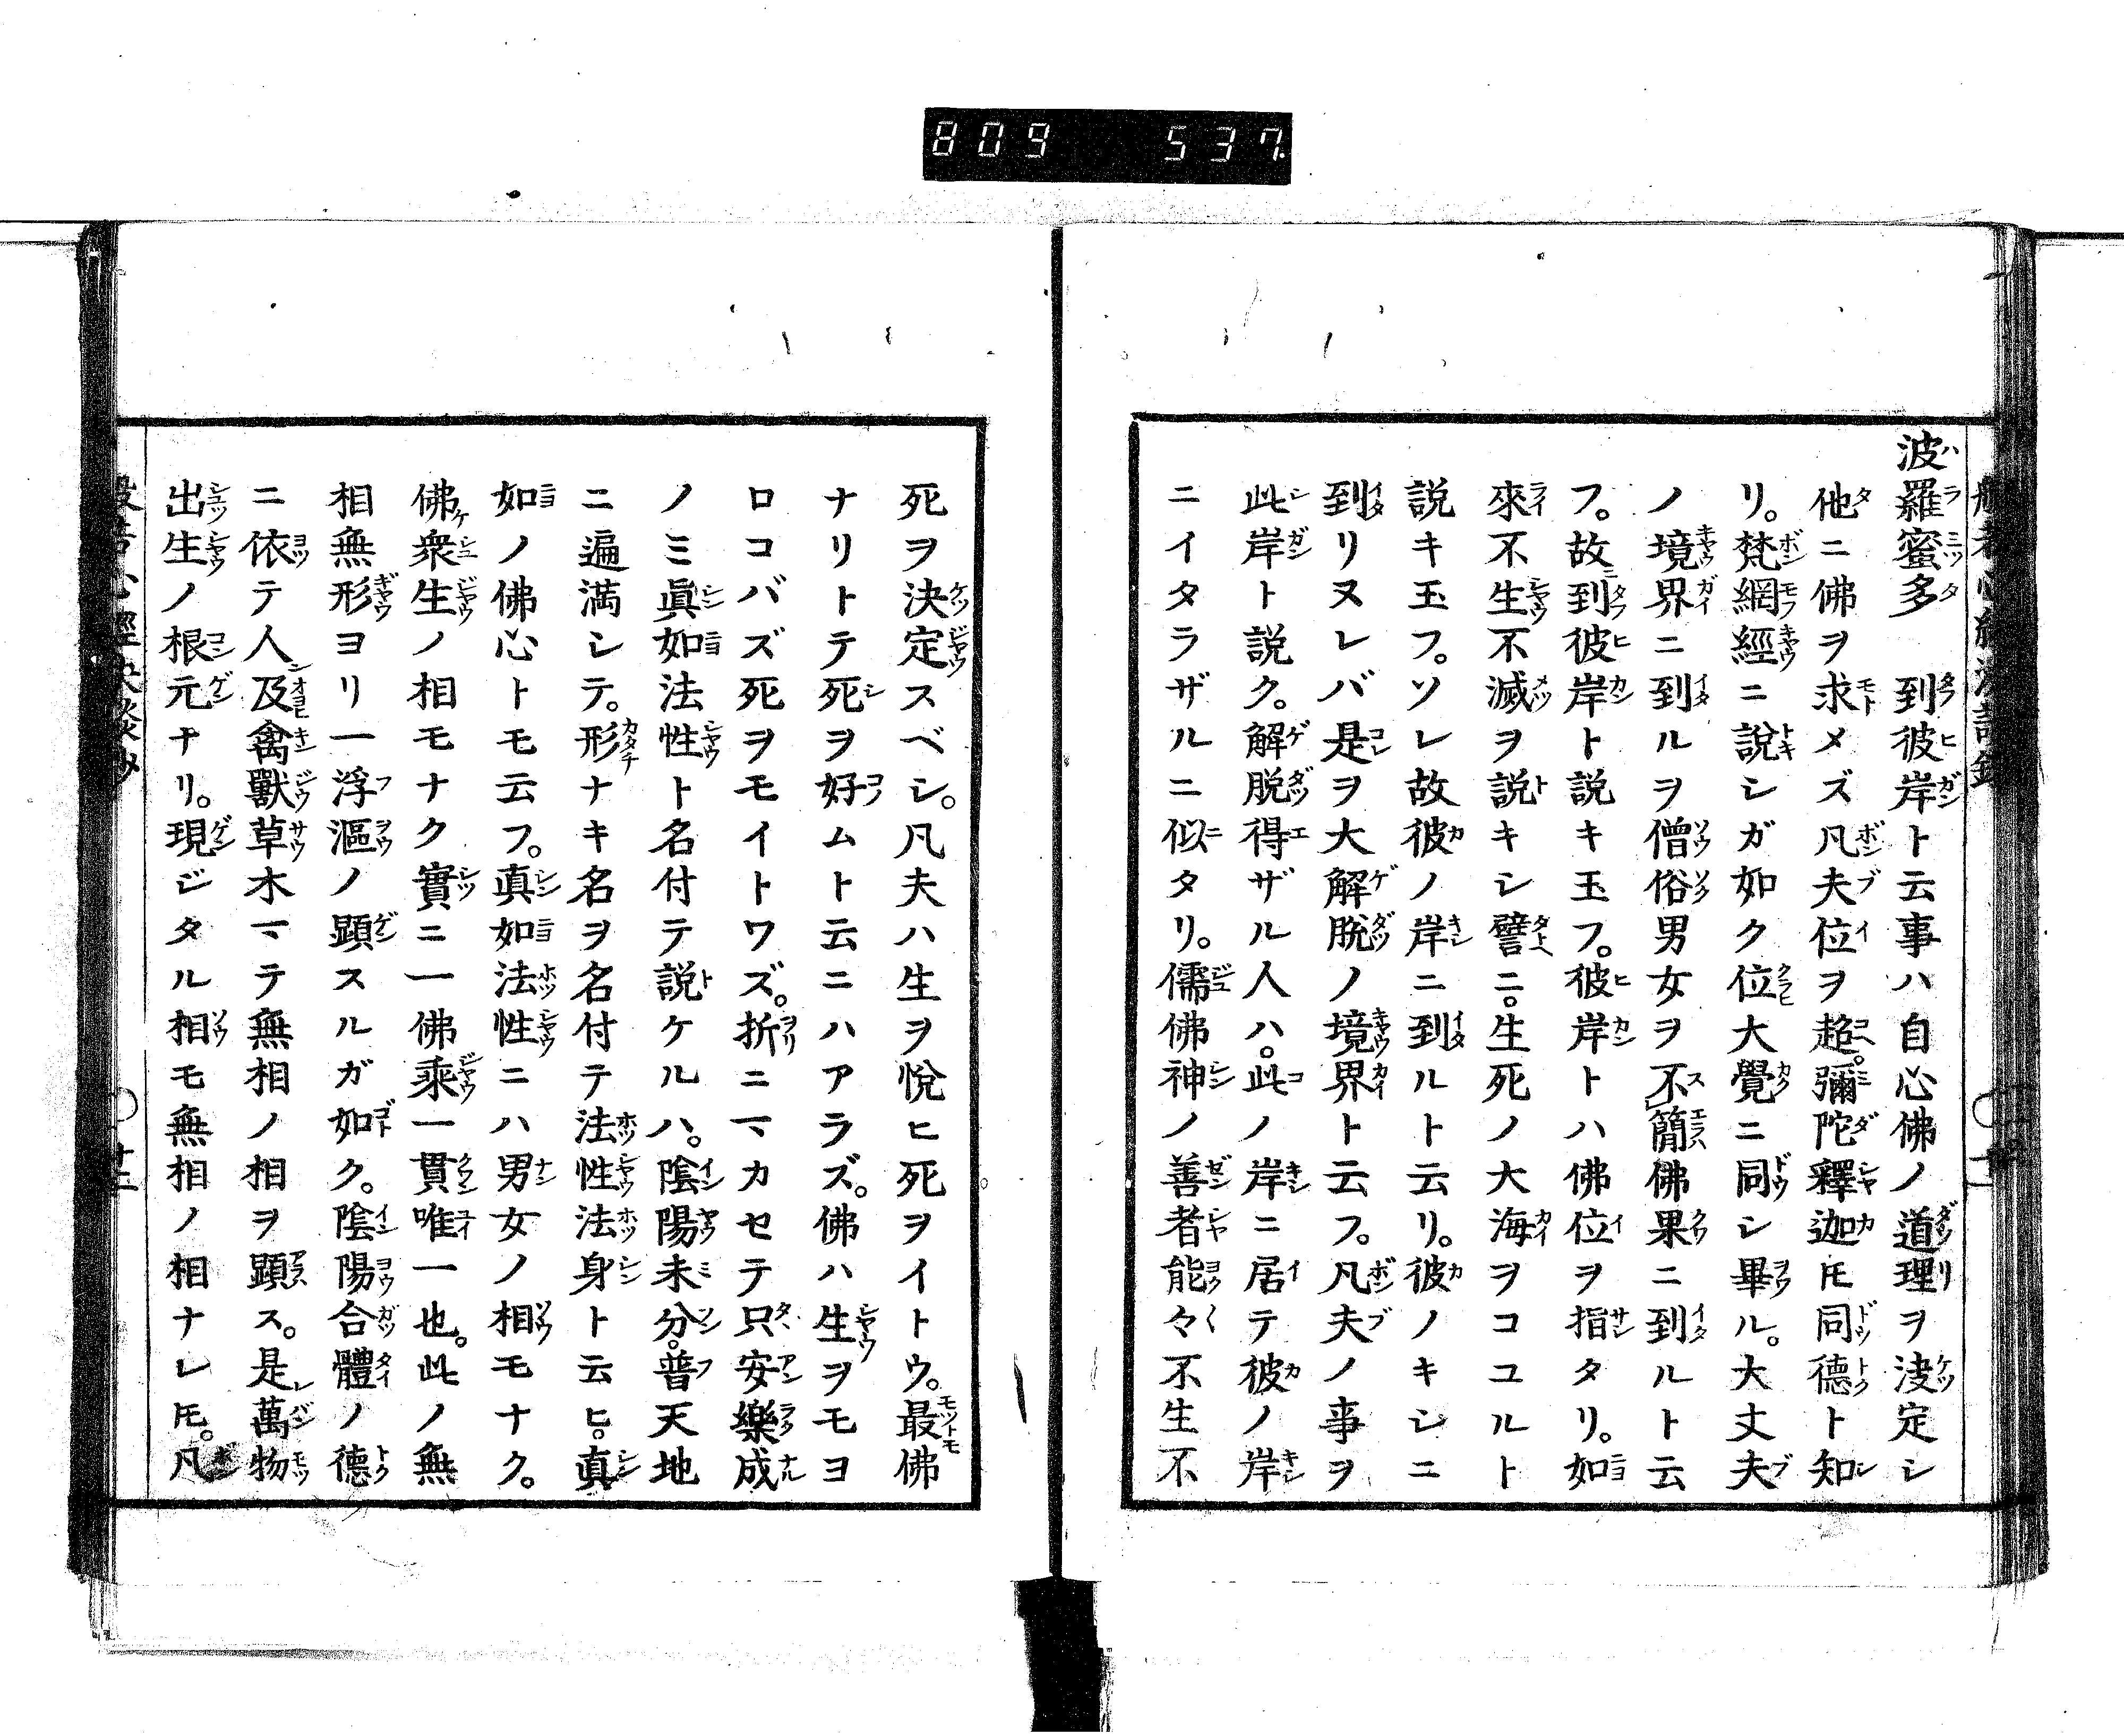 809 537
波羅蜜多　到彼岸ト云事ハ自心佛ノ道理ヲ决定シ
他ニ佛ヲ求メズ凡夫位ヲ超。彌陀釋迦𪜈同德ト知
リ。梵網經ニ說シガ如ク位大覺ニ同シ畢ル。大丈夫
ノ境界ニ到ルヲ僧俗男女ヲ不簡佛果ニ到ルト云
フ。故到彼岸ト説キ玉フ。彼岸トハ佛位ヲ指タリ。如
來不生不滅ヲ説キシ譬ニ。生死ノ大海ヲコユルト
説キ玉フ。ソレ故彼ノ岸ニ到ルト云リ。彼ノキシニ
到リヌレバ是ヲ大解脱ノ境界ト云フ。凡夫ノ事ヲ
此岸ト説ク。解脱得ザル人ハ。此ノ岸ニ居テ彼ノ岸
ニイタラザルニ似タリ。儒佛神ノ善者能々不生不
死ヲ決定スベシ。凡夫ハ生ヲ悅ヒ死ヲイトウ。最佛
ナリトテ死ヲ好ムト云ニハアラズ。佛ハ生ヲモヨ
ロコバズ死ヲモイトワズ。折ニマカセテ只安樂成
ノミ眞如法性ト名付テ説ケルハ。陰陽未分。普天地
ニ遍満シテ。形ナキ名ヲ名付テ法性法身ト云ヒ。真
如ノ佛心トモ云フ。真如法性ニハ男女ノ相モナク。
佛衆生ノ相モナク實ニ一佛乘一貫唯一也。此ノ無
相無形ヨリ一浮漚ノ顕スルガ如ク。陰陽合體ノ德
ニ依テ人及禽獸草木マテ無相ノ相ヲ顕ス。是萬物
出生ノ根元ナリ。現ジタル相モ無相ノ相ナレ𪜈。凡